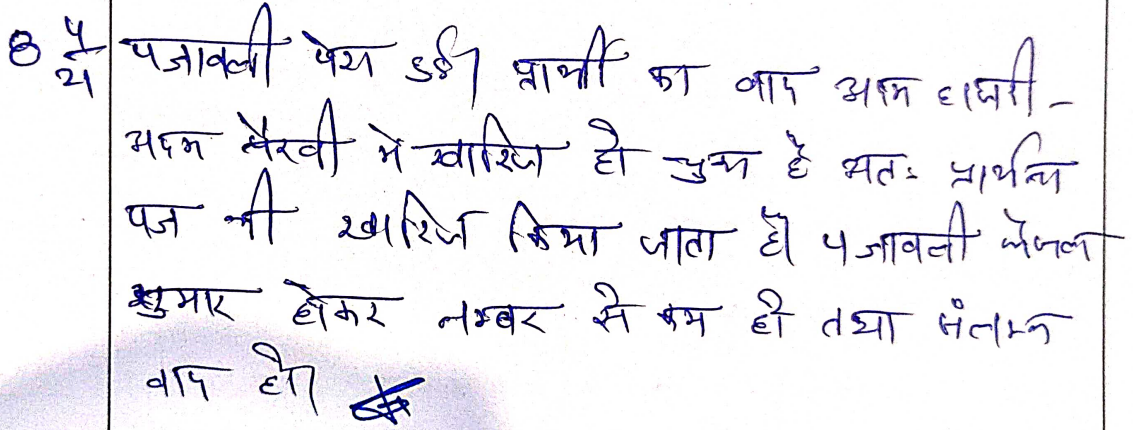 8 4/21 पत्रावली पेश हुई। प्रार्थी का वाद अदम हाजरी -
अदम पैरवी में खारिज हो चुका है अतः प्रार्थना
पत्र भी खारिज किया जाता है। पत्रावली फैसल
शुमार होकर नम्बर से कम हो तथा संलग्न
वाद हो।